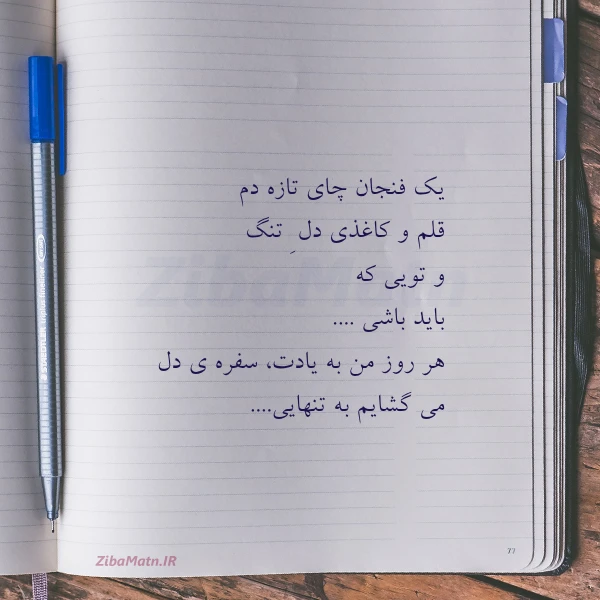 یک فنجان چای تازه دم
قلم و کاغذی دل ِ تنگ
و تویی که
باید باشی ....
هر روز من به یادت، سفره ی دل
می گشایم به تنهایی....
ZibaMatn
STAEDTLER triplus fineliner
77
ZibaMatn.IR